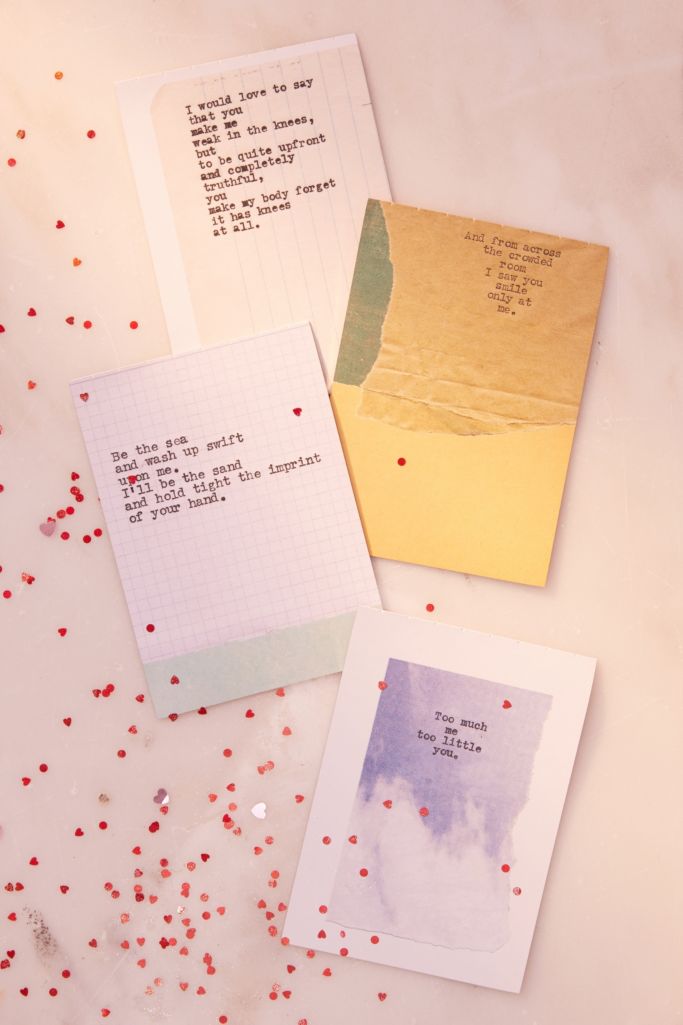 I would love to say
that you
make me
weak in the knees,
but
to be quite upfront
and completely
truthful,
you
make my body forget
it has knees
at all.
And from across
the crowded
room
I saw you
smile
only at
me.
Be the sea
and wash up swift
upon me.
I'll be the sand
and hold tight the imprint
of your hand.
Too much
me
too little
you.